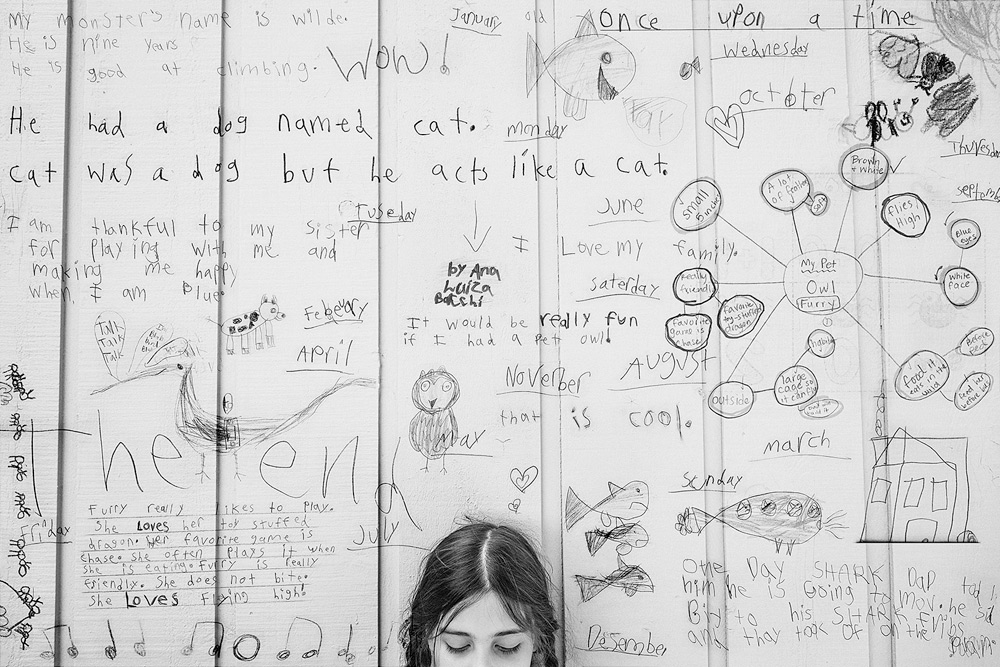 My monster's name is wilde.
He is nine years old
He is good at climbing.
WOW!
January
Once upon a time
Wednesday
octobter
He had a dog named cat.
monday
cat was a dog but he acts like a cat.
Thuresday
septomb
Tuseday
I am thankful to my sister
for playing with me and
making me happy
when I am blue.
June
I Love my family.
by Ana
Luiza
Saterday
It would be really fun
if I had a pet owl!
Febeary
April
Talk
Talk
Talk
November
August
that is cool.
May
helena
march
Brown
+ white
A lot
of feathers
soft
small
5 inches
flies
High
Blue
eyes
White
face
My Pet
Owl
Furry
Really
friendly
favorite
toy-stuffed
dragon
favorite
game is
chase
outside
large
cage so
it can fly
food it
eats
Sunday
Friday
July
Furry really likes to play.
She Loves her toy stuffed
dragon. Her favorite game is
chase. She often plays it when
she is eating. Furry is really
friendly. She does not bite.
She LOVES flying high!
One Day SHARK DaD told
him he is going to mov. he sid
By to his SHARK
and thay took of on the
Desember